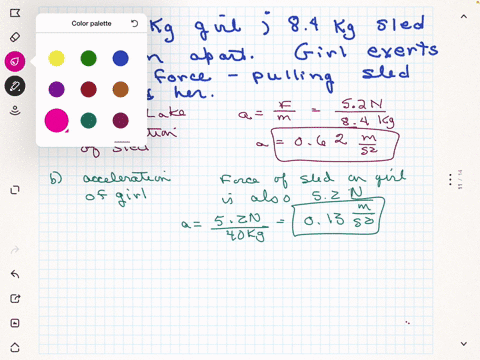 Color palette
Kg girl ; 8.4 Kg sled
n apart. Girl exerts
force - pulling sled
s her.
Lake
a = F/m = 5.2N/8.4 Kg
of sled
a = 0.62 m/s2
b) acceleration
of girl
Force of sled on girl
is also 5.2 N
a = 5.2N/40Kg = 0.13 m/s2